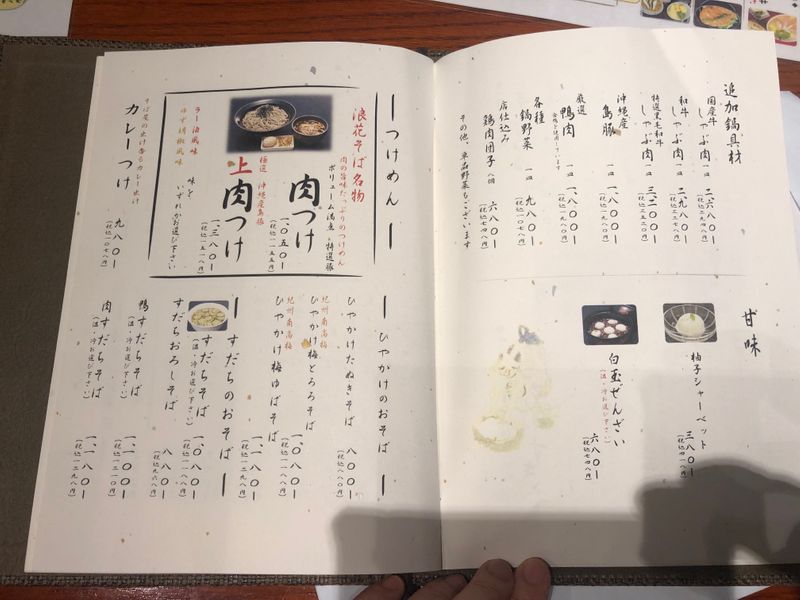 追加鍋具材
国産牛
しゃぶ肉 一皿 二、六八〇ー
(税込二九四八円)
和牛
しゃぶ肉 一皿 二、九八〇ー
(税込三二七八円)
特選黒毛和牛
しゃぶ肉 一皿 三、二〇〇ー
(税込三五二〇円)
沖縄産
島豚 一皿 一、八〇〇ー
(税込一九八〇円)
厳選
鴨肉 一皿 一、八〇〇ー
合鴨を使用しています
(税込一九八〇円)
各種
鍋野菜 一皿 九八〇ー
(税込一〇七八円)
店仕込み
鶏肉団子 八個 六八〇ー
(税込七四八円)
その他、単品野菜もございます
甘味
柚子シャーベット 三八〇ー
(税込四一八円)
白玉ぜんざい 六八〇ー
(温・冷お選び下さい)
(税込七四八円)
ー つけめん ー
浪花そば名物
肉の旨味たっぷりのつけめん
ボリューム満点の特選豚
肉つけ 一、〇五〇ー
(税込一一五五円)
極選 沖縄産島豚
上肉つけ 一、三八〇ー
(税込一五一八円)
味を いずれかお選び下さい
ラー油風味
ゆず胡椒風味
そば屋の出汁香るカレー出汁
カレーつけ 九八〇ー
(税込一〇七八円)
ー ひやかけのおそば ー
ひやかけたぬきそば 八〇〇ー
(税込八八〇円)
紀州南高梅
ひやかけ梅とろろそば 一、〇八〇ー
(税込一一八八円)
紀州南高梅
ひやかけ梅ゆばそば 一、一八〇ー
(税込一二九八円)
ー すだちのおそば ー
すだちそば 一、〇八〇ー
(温・冷お選び下さい)
(税込一一八八円)
すだちおろしそば 八八〇ー
(税込九六八円)
鴨すだちそば 一、一〇〇ー
(温・冷お選び下さい)
(税込一二一〇円)
肉すだちそば 一、一八〇ー
(温・冷お選び下さい)
(税込一二九八円)